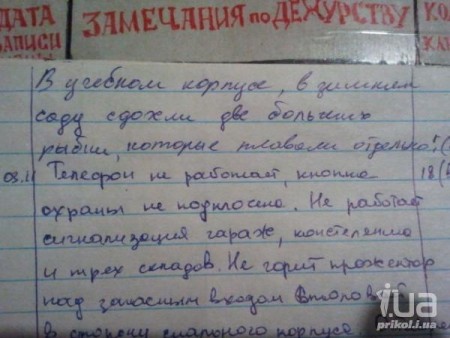 ДАТА ЗАМЕЧАНИЯ ПО ДЕЖУРСТВУ КО
ЗАПИСИ
В учебном корпусе, в зимнем
саду сдохли две больших
рыбки, которые плавали отдельно!
03.11 Телефон не работает, кнопка 18
охраны не подключена. Не работает
сигнализация гараж,
и трёх складов. Не горит прожектор
над запасным входом
в сторону спального корпуса.
iua
prikol.i.ua